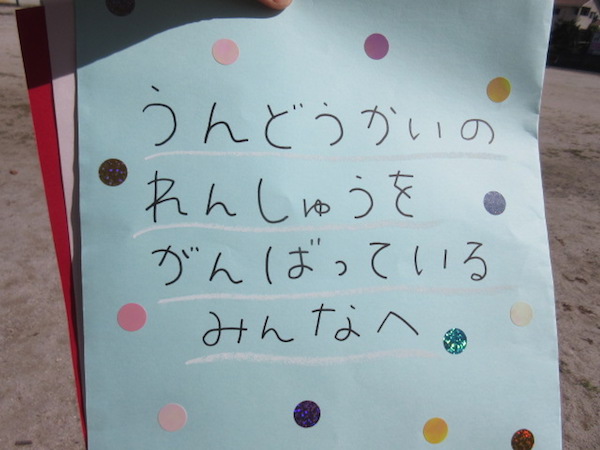 うんどうかいの
れんしゅうを
がんばっている
みんなへ